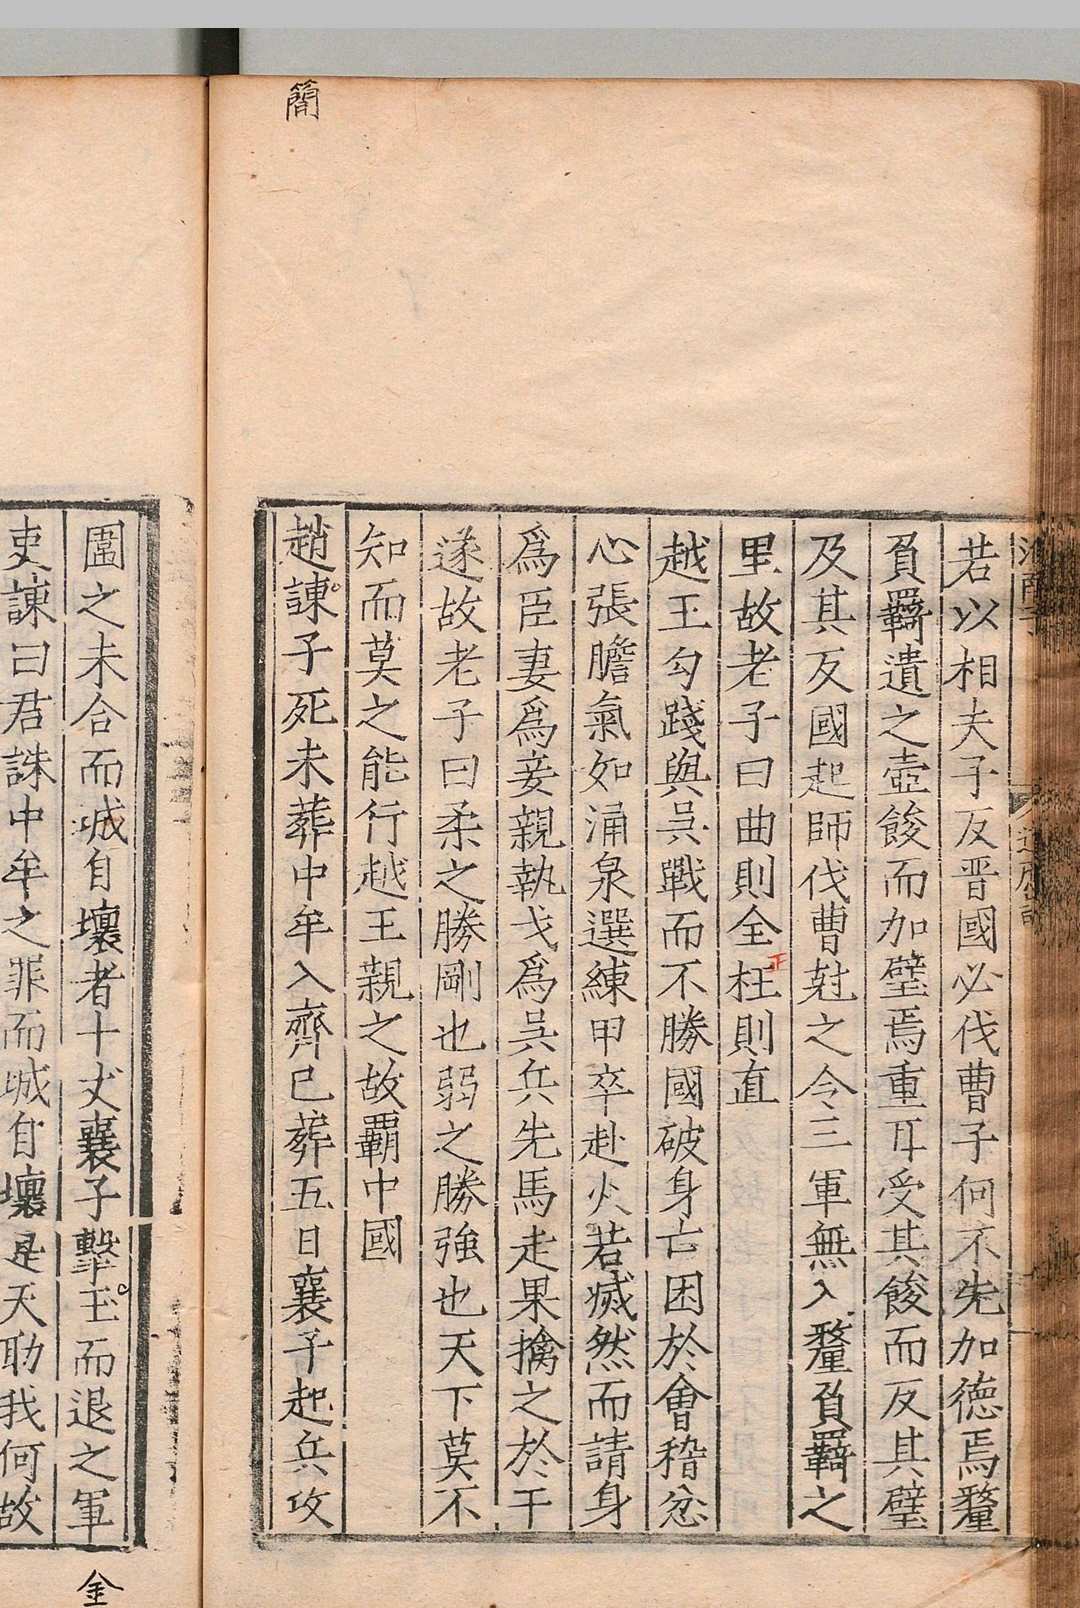 若以相夫子反晋國必伐曹子何不先加德焉釐
負羈遺之壺餕而加璧焉重耳受其餕而反其璧
及其反國起師伐曹尅之令三軍無入釐負羈之
里故老子曰曲則全枉則直
正
越王勾踐與吳戰而不勝國破身亡困於會稽忿
心張膽氣如涌泉選練甲卒赴火若滅然而請身
為臣妻為妾親執戈為吳兵先馬走果擒之於干
遂故老子曰柔之勝剛也弱之勝強也天下莫不
知而莫之能行越王親之故覇中國
趙諫子死未葬中牟入齊已葬五日襄子起兵攻
簡
圍之未合而城自壞者十丈襄子擊玉而退之軍
吏諫曰君誅中牟之罪而城自壞是天助我何故
金